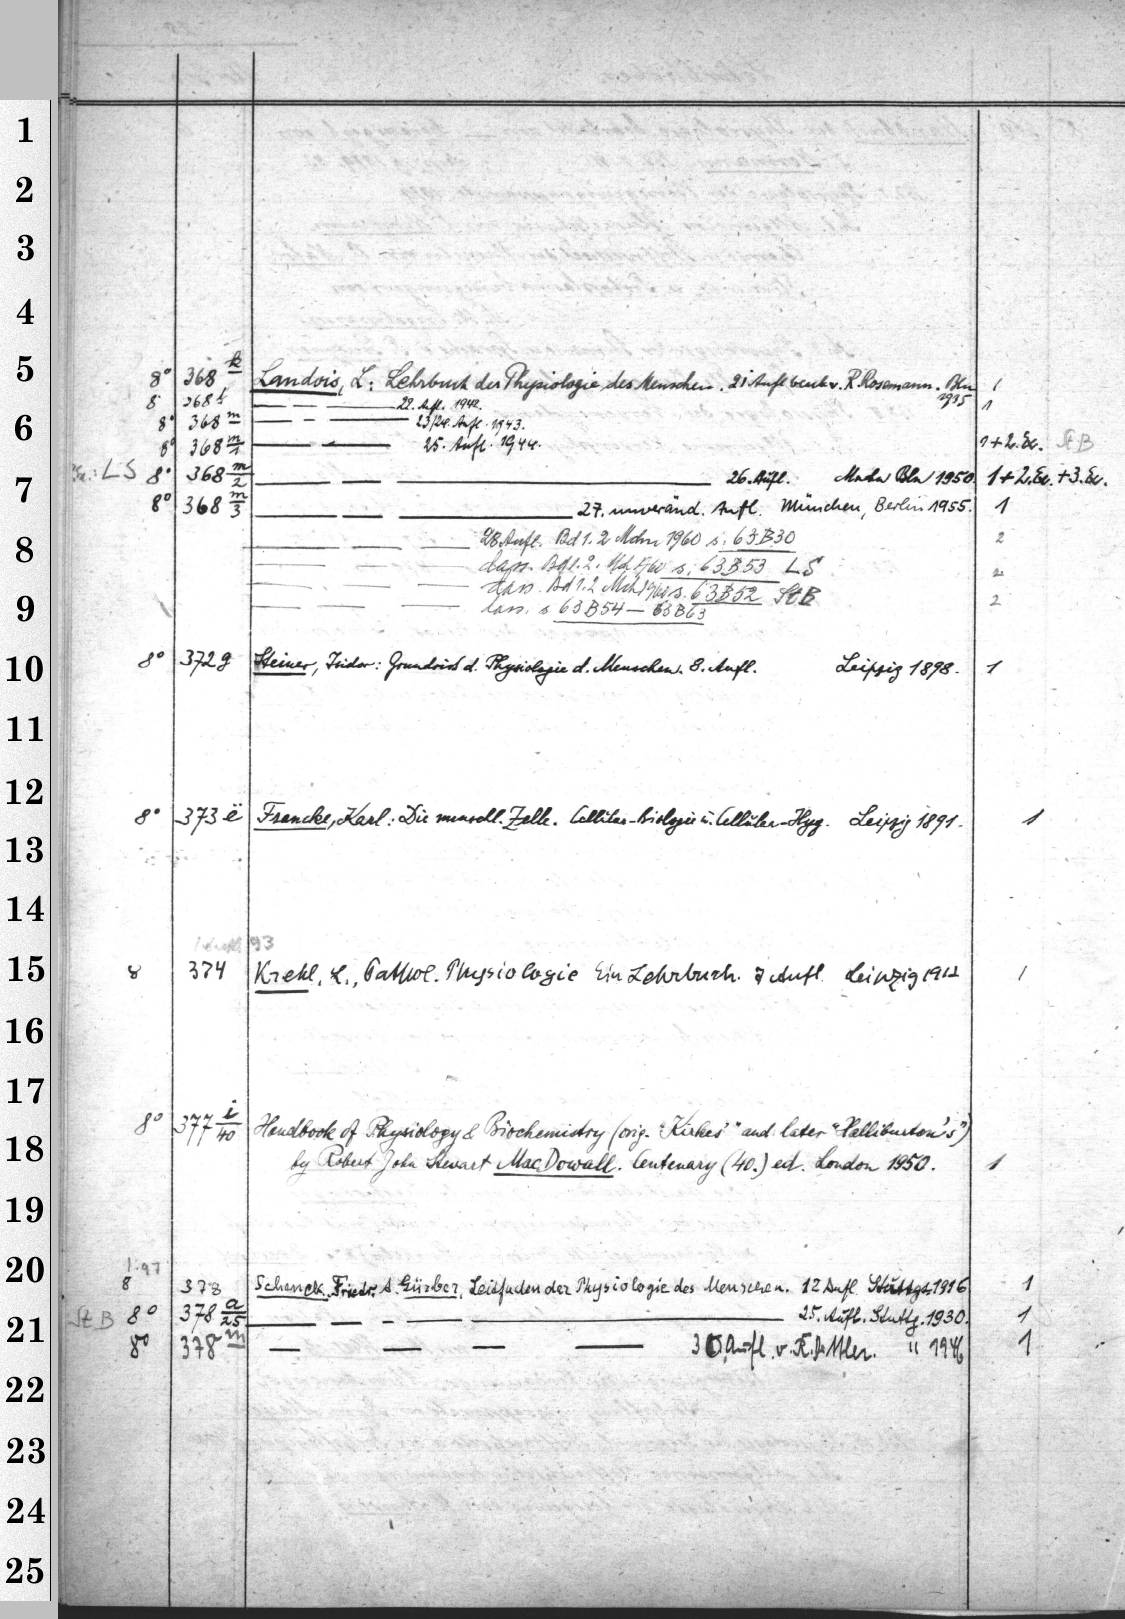 1
2
3
4
5 8° 368 k Landois, L.: Lehrbuch der Physiologie des Menschen. 21 Aufl bearb. v. R. Rosemann. Bln 1935 1
8° 368 l — — — 22. Aufl. 1942. 1
6 8° 368 m — — — 23/24. Aufl. 1943.
8° 368 m/1 — — — 25. Aufl. 1944. 1+2.Ex. StB
LS 8° 368 m/2 — — — 26. Aufl. Mchn Bln 1950. 1+2.Ex.+3.Ex.
7 8° 368 m/3 — — — 27. unveränd. Aufl. München, Berlin 1955. 1
8 — — — 28. Aufl. Bd 1.2 Mchn 1960 s. 63B30 2
— — — dass. Bd 1.2. Mch 1960 s. 63B53 LS 2
— — — dass. Bd 1.2 Mch 1960 s. 63B52 StB
9 — — — dass. s 63B54 — 63B63 2
10 8° 372 g Steiner, Isidor: Grundriss d. Physiologie d. Menschen. 8. Aufl. Leipzig 1898. 1
11
12 8° 373 ë Francke, Karl: Die menschl. Zelle. Cellular-Biologie u. Cellular-Hyg. Leipzig 1891. 1
13
14
93
15 8 374 Krehl, L., Pathol. Physiologie Ein Lehrbuch. 7 Aufl Leipzig 1912 1
16
17
8° 377 i/40 Handbook of Physiology & Biochemistry (orig. "Kirkes'" and later "Halliburton's")
18 by Robert John Stewart MacDowall. Centenary (40.) ed. London 1950. 1
19
20 1.97
8 378 Schenck, Friedr. A. Gürber, Leitfaden der Physiologie des Menschen. 12 Aufl Stuttgt. 1916 1
StB 8° 378 a/25 — — — 25. Aufl. Stuttg. 1930. 1
21 8° 378 m — — — 30. Aufl. v. K. " 1946 1
22
23
24
25